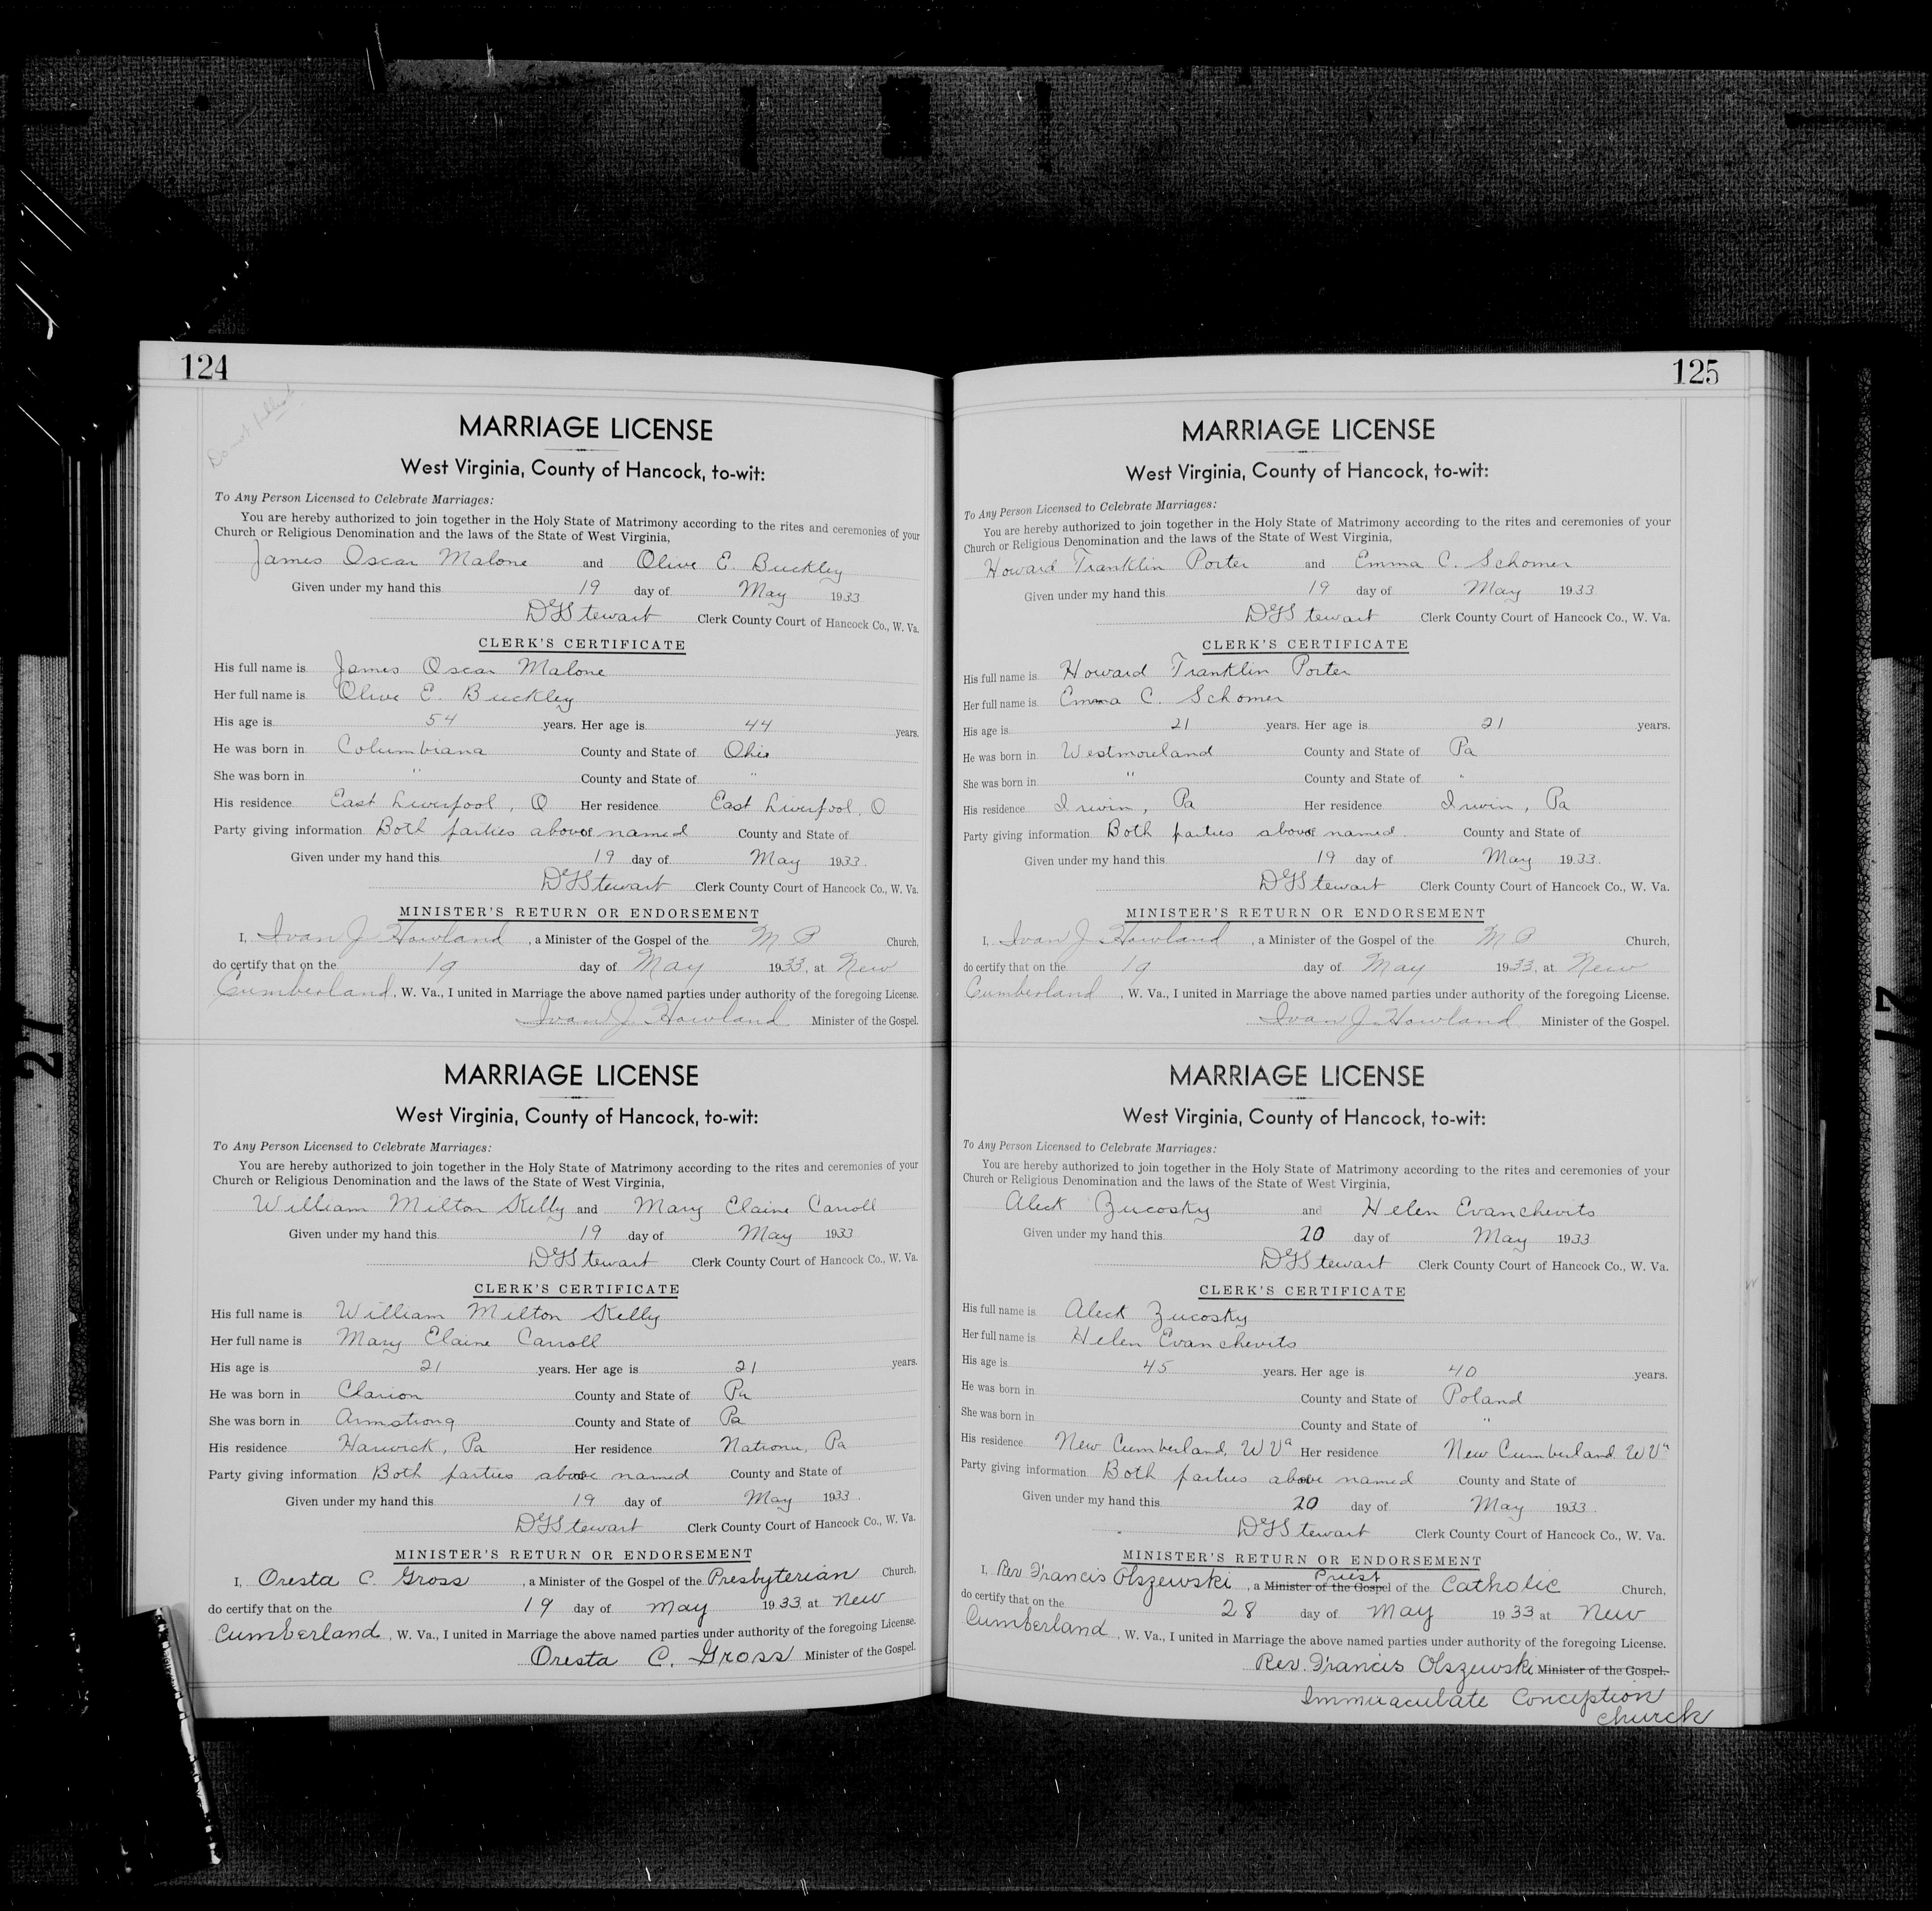 124
Do not publish
MARRIAGE LICENSE
West Virginia, County of Hancock, to-wit:
To Any Person Licensed to Celebrate Marriages:
You are hereby authorized to join together in the Holy State of Matrimony according to the rites and ceremonies of your
Church or Religious Denomination and the laws of the State of West Virginia,
James Oscar Malone and Olive E. Buckley
Given under my hand this 19 day of May 1933
D G Stewart Clerk County Court of Hancock Co., W. Va.
CLERK'S CERTIFICATE
His full name is James Oscar Malone
Her full name is Olive E. Buckley
His age is 54 years. Her age is 44 years.
He was born in Columbiana County and State of Ohio
She was born in " County and State of "
His residence East Liverpool, O Her residence East Liverpool, O
Party giving information Both parties above of named County and State of
Given under my hand this 19 day of May 1933.
D G Stewart Clerk County Court of Hancock Co., W. Va.
MINISTER'S RETURN OR ENDORSEMENT
I, Ivan J. Howland, a Minister of the Gospel of the M P Church,
do certify that on the 19 day of May 1933, at New
Cumberland, W. Va., I united in Marriage the above named parties under authority of the foregoing License.
Ivan J. Howland Minister of the Gospel.
MARRIAGE LICENSE
West Virginia, County of Hancock, to-wit:
To Any Person Licensed to Celebrate Marriages:
You are hereby authorized to join together in the Holy State of Matrimony according to the rites and ceremonies of your
Church or Religious Denomination and the laws of the State of West Virginia,
William Milton Skelly and Mary Elaine Carroll
Given under my hand this 19 day of May 1933
D G Stewart Clerk County Court of Hancock Co., W. Va.
CLERK'S CERTIFICATE
His full name is William Milton Skelly
Her full name is Mary Elaine Carroll
His age is 21 years. Her age is 21 years.
He was born in Clarion County and State of Pa
She was born in Armstrong County and State of Pa
His residence Harwick, Pa Her residence Natrona, Pa
Party giving information Both parties above named County and State of
Given under my hand this 19 day of May 1933.
D G Stewart Clerk County Court of Hancock Co., W. Va.
MINISTER'S RETURN OR ENDORSEMENT
I, Oresta C. Gross, a Minister of the Gospel of the Presbyterian Church,
do certify that on the 19 day of May 1933, at New
Cumberland, W. Va., I united in Marriage the above named parties under authority of the foregoing License.
Oresta C. Gross Minister of the Gospel.
125
MARRIAGE LICENSE
West Virginia, County of Hancock, to-wit:
To Any Person Licensed to Celebrate Marriages:
You are hereby authorized to join together in the Holy State of Matrimony according to the rites and ceremonies of your
Church or Religious Denomination and the laws of the State of West Virginia,
Howard Franklin Porter and Emma C. Schomer
Given under my hand this 19 day of May 1933
D G Stewart Clerk County Court of Hancock Co., W. Va.
CLERK'S CERTIFICATE
His full name is Howard Franklin Porter
Her full name is Emma C. Schomer
His age is 21 years. Her age is 21 years.
He was born in Westmoreland County and State of Pa
She was born in " County and State of "
His residence Irwin, Pa Her residence Irwin, Pa
Party giving information Both parties above of named. County and State of
Given under my hand this 19 day of May 1933.
D G Stewart Clerk County Court of Hancock Co., W. Va.
MINISTER'S RETURN OR ENDORSEMENT
I, Ivan J. Howland, a Minister of the Gospel of the M P Church,
do certify that on the 19 day of May 1933, at New
Cumberland, W. Va., I united in Marriage the above named parties under authority of the foregoing License.
Ivan J. Howland Minister of the Gospel.
MARRIAGE LICENSE
West Virginia, County of Hancock, to-wit:
To Any Person Licensed to Celebrate Marriages:
You are hereby authorized to join together in the Holy State of Matrimony according to the rites and ceremonies of your
Church or Religious Denomination and the laws of the State of West Virginia,
Aleck Zucosky and Helen Evanchevits
Given under my hand this 20 day of May 1933
D G Stewart Clerk County Court of Hancock Co., W. Va.
CLERK'S CERTIFICATE
His full name is Aleck Zucosky
Her full name is Helen Evanchevits
His age is 45 years. Her age is 40 years.
He was born in County and State of Poland
She was born in County and State of "
His residence New Cumberland, W Va Her residence New Cumberland W Va
Party giving information Both parties above named County and State of
Given under my hand this 20 day of May 1933.
D G Stewart Clerk County Court of Hancock Co., W. Va.
MINISTER'S RETURN OR ENDORSEMENT
Priest
I, Rev Francis Olszewski, a Minister of the Gospel of the Catholic Church,
do certify that on the 28 day of May 1933 at New
Cumberland, W. Va., I united in Marriage the above named parties under authority of the foregoing License.
Rev. Francis Olszewski Minister of the Gospel.
Immuaculate Conception
church
27
17